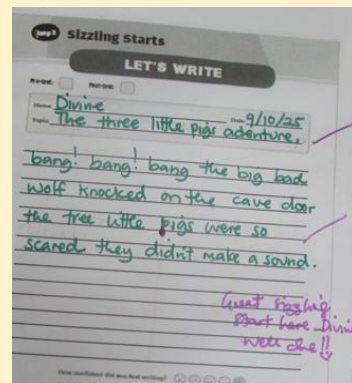 Jump 2 Sizzling Starts
LET'S WRITE
Pre-test: Post-test:
Name Divine Date 9/10/25
Topic The three little pigs adenture.
bang! bang! bang the big bad
wolf knocked on the cave door
the tree little pigs were so
scared they didn't make a sound.
Great sizzling
start here Divine
well done!!
How confident did you feel writing?